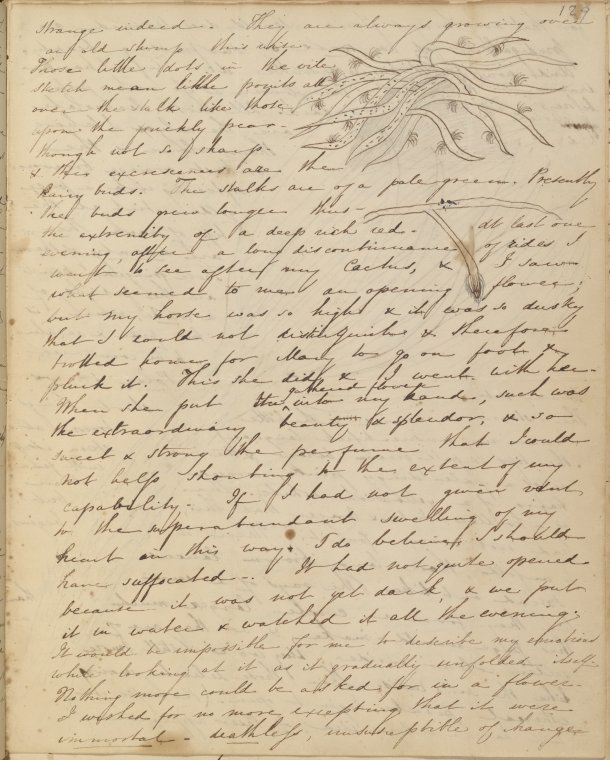 127
strange indeed -. They are always growing over
an old stump this wise
Those little dots in the vile
sketch mean little points all
over the stalk like those
upon the prickly pear -
though not so sharp.
& the excrescences are the
hairy buds. The stalks are of a pale green. Presently
the buds grow longer thus -
the extremity of a deep rich red. - At last one
evening, after a long discontinuance of rides I
went to see after my Cactus, & I saw
what seemed to me an opening flower;
but my horse was so high & it was so dusky
that I could not distinguish & therefore
trotted home for Mary to go on foot &
pluck it. This she did & I went with her.
When she put the gathered flower into my hand, such was
the extraordinary beauty & splendor, & so
sweet & strong the perfume that I could
not help shouting to the extent of my
capability. If I had not given vent
to the superabundant swelling of my
heart in this way, I do believe I should
have suffocated -. It had not quite opened
because it was not yet dark, & we put
it in water & watched it all the evening.
It would be impossible for me to describe my emotions
while looking at it as it gradually unfolded itself.
Nothing more could be asked for in a flower
I wished for no more excepting that it were
immortal - deathless, unsusceptible of change -